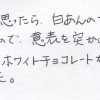 思ったら、白あんの
ので、意表を突か
ホワイトチョコレートが
た。